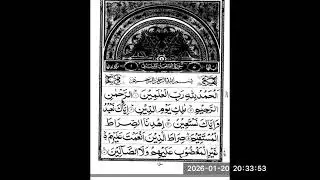 بسم الله الرحمن الرحيم
الحمد لله رب العلمين الرحمن
الرحيم ملك يوم الدين إياك نعبد
وإياك نستعين إهدنا الصراط
المستقيم صراط الذين أنعمت عليهم
غير المغضوب عليهم ولا الضالين
2026-01-20 20:33:53